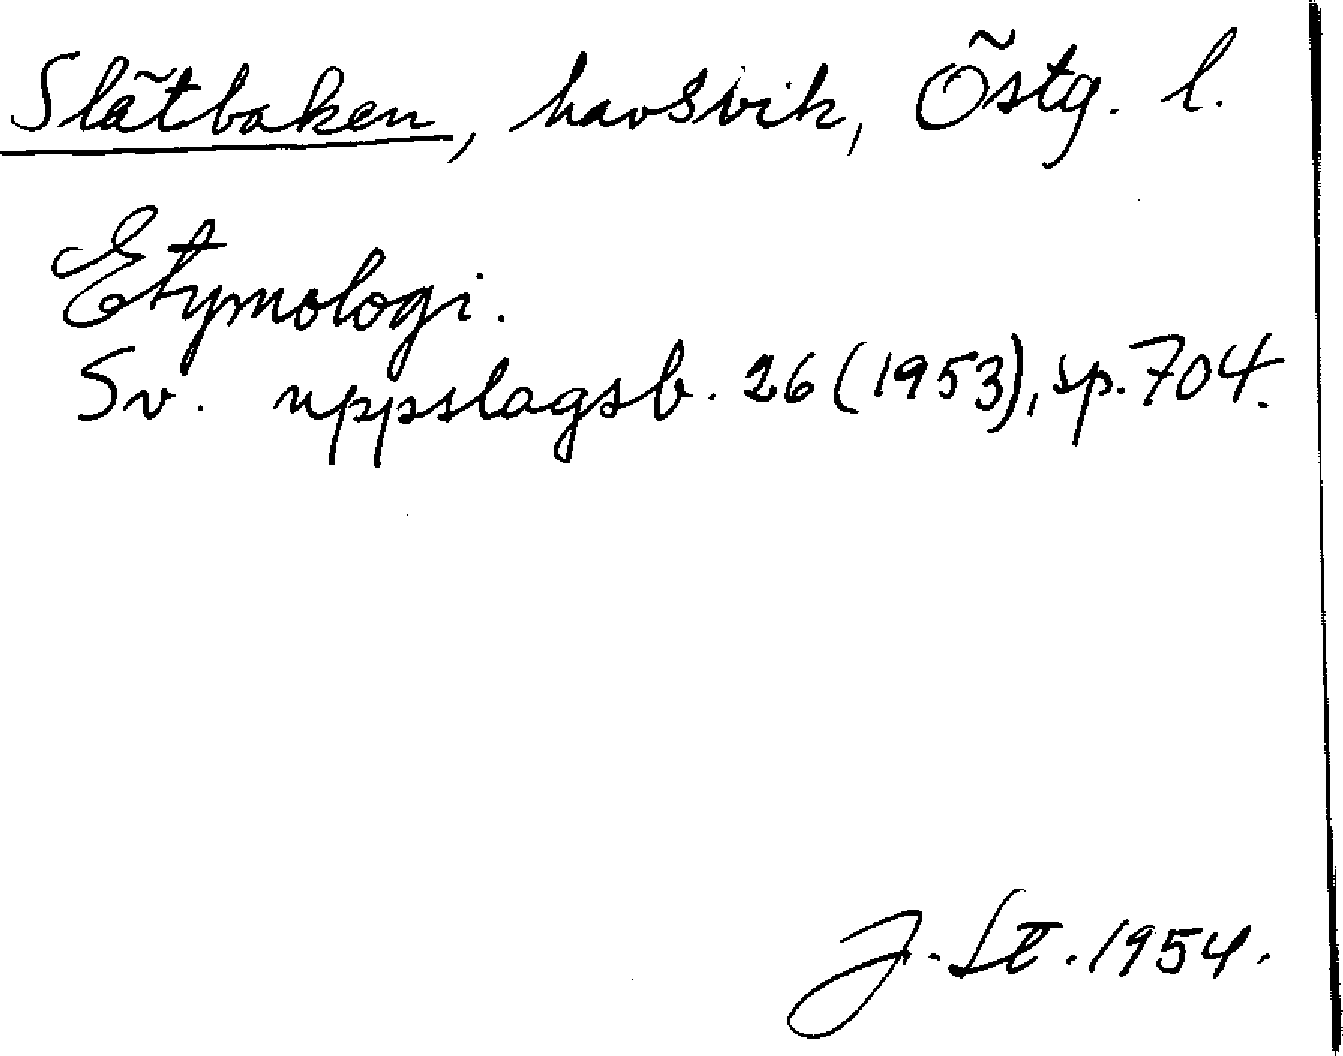 Slätbaken, havsvik, Östg. l.
Etymologi.
Sv. uppslagsb. 26 (1953), sp. 704.
J. 1954.